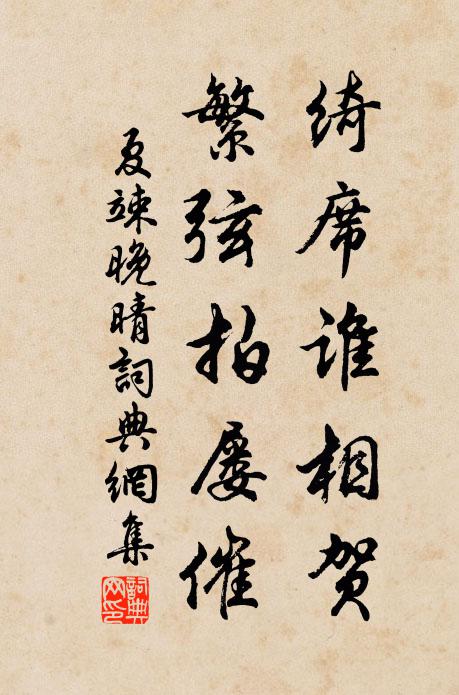 绮席谁相贺
繁弦拍屡催
夏竦晚晴詞典網集
詞典网印